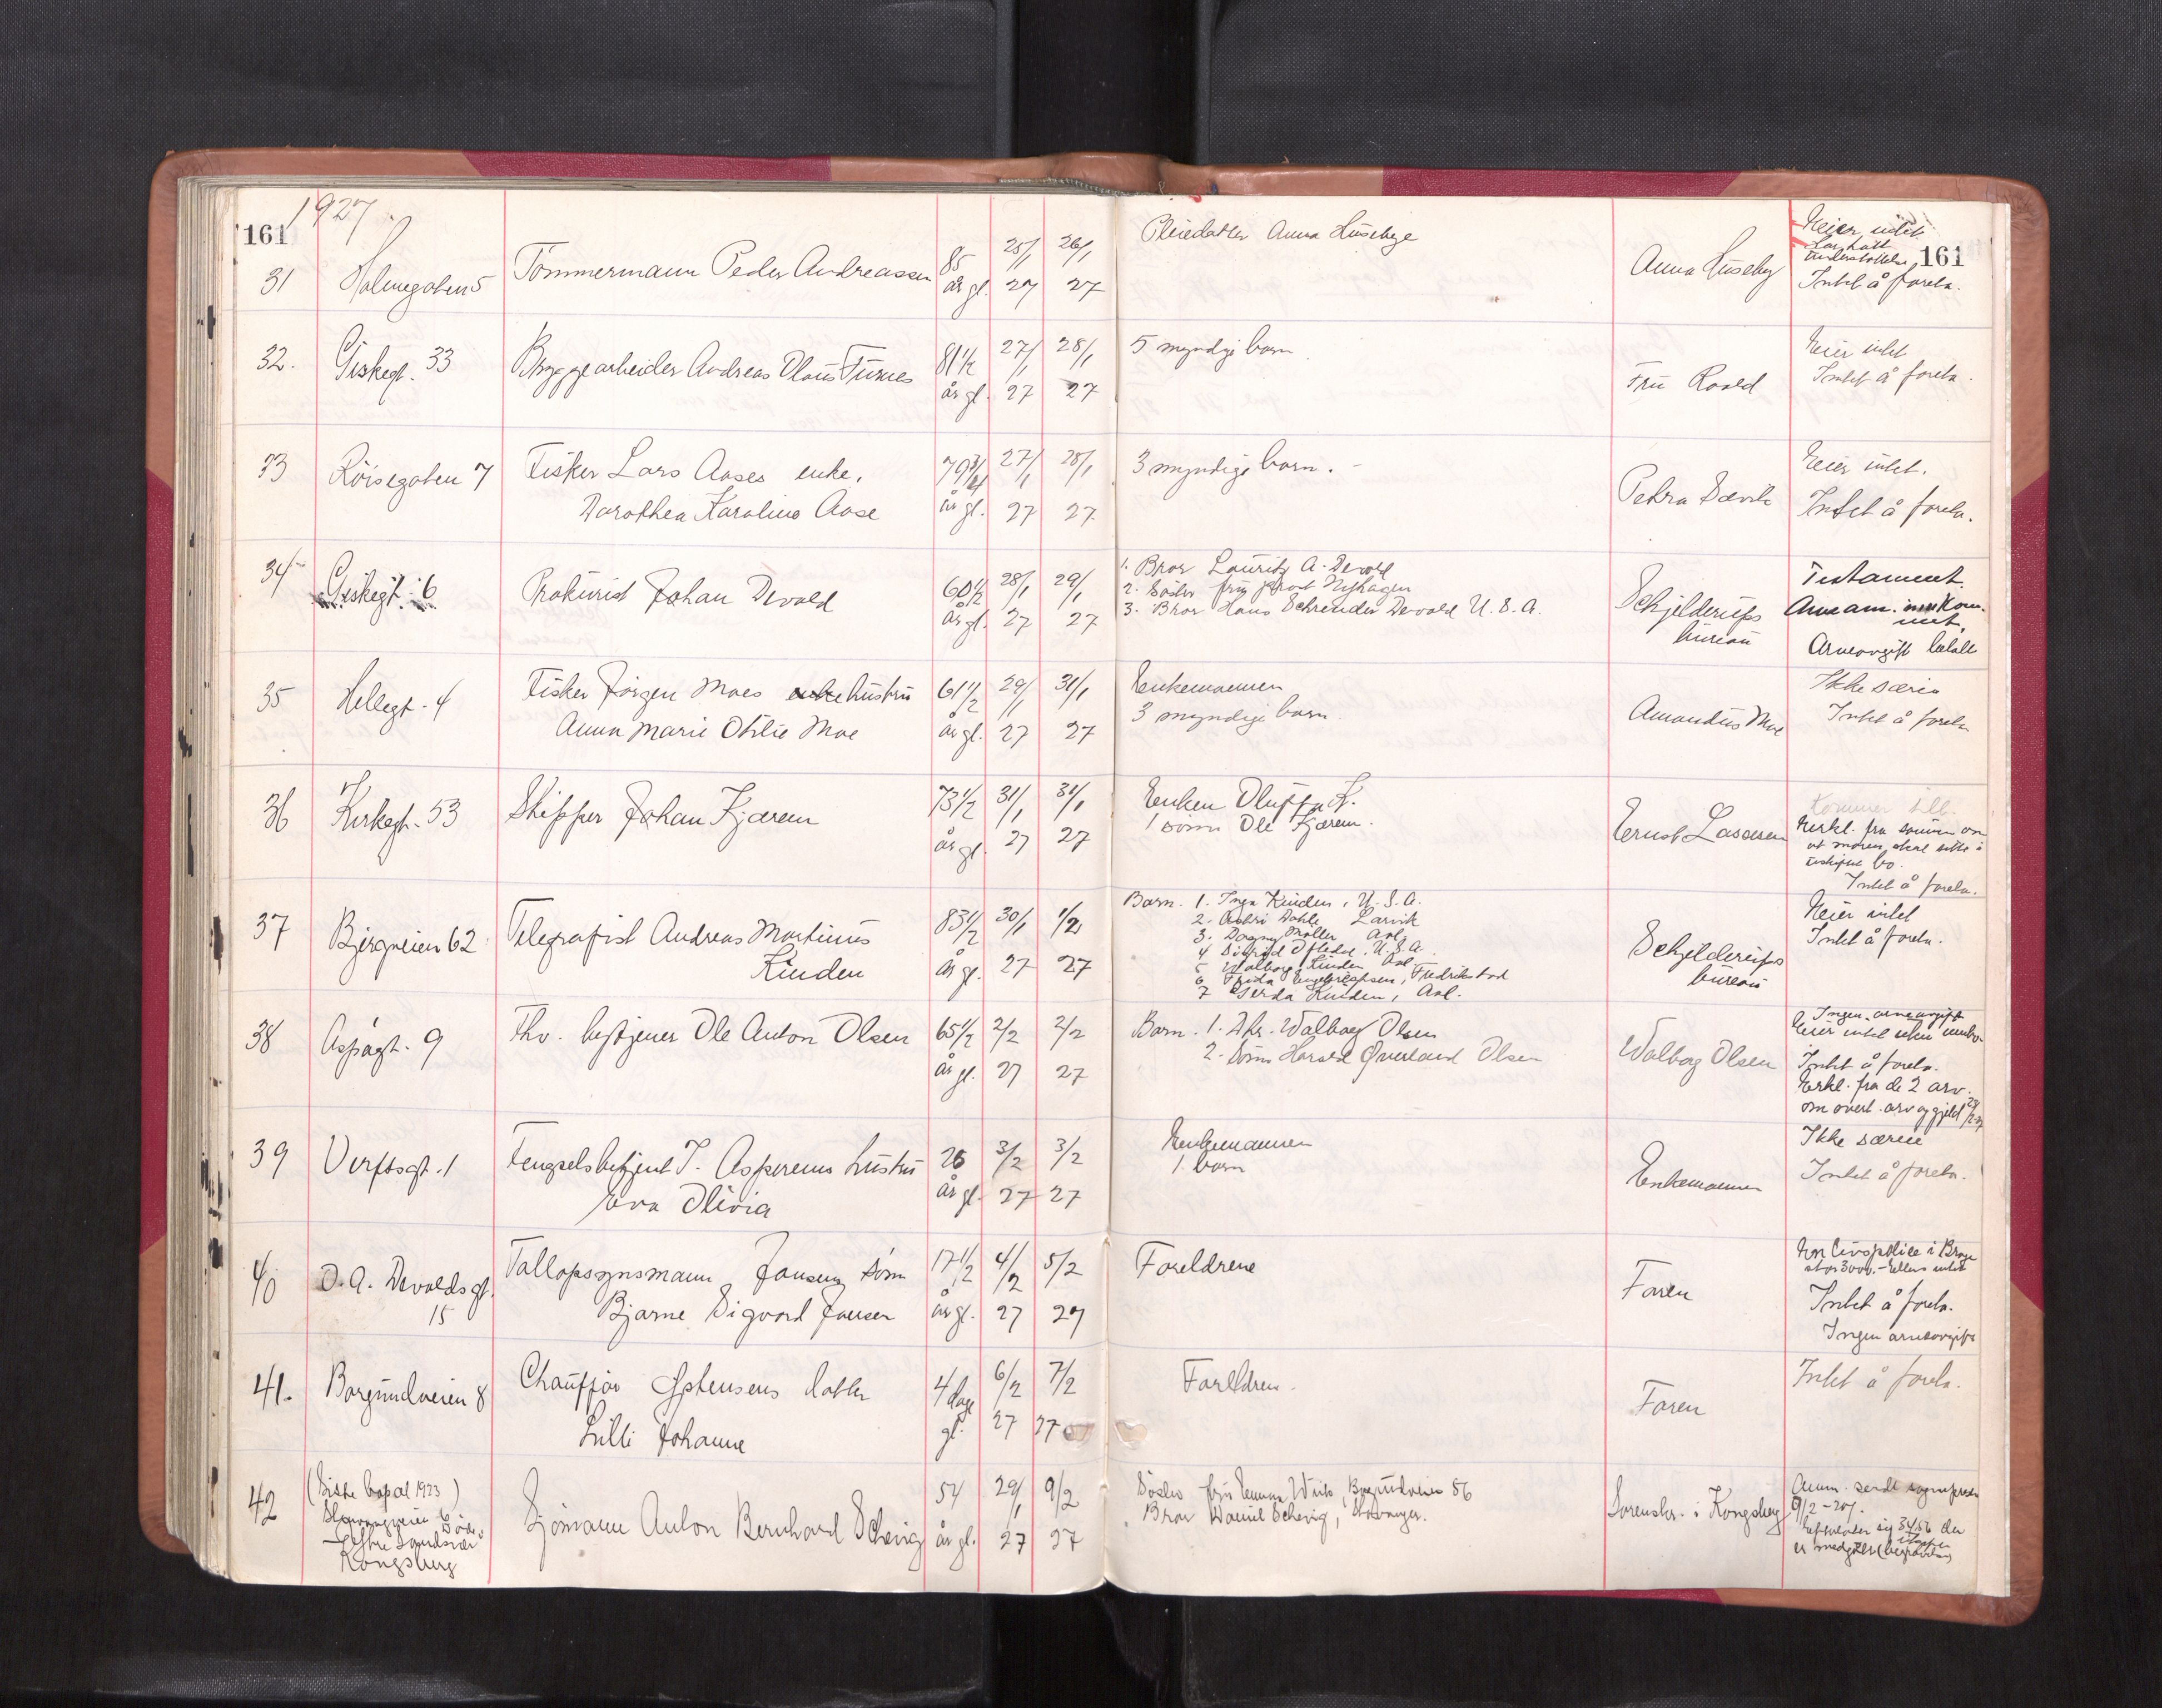 1927
161
161
31
Holmegaten 5
Tømmermann Peder Andreassen
85
år gl.
25/1
27
26/1
27
Pleiedatter Anna Huseby
Anna Huseby
Eier intet
Har hatt
understøttelse
Intet å foreta.
32.
Giskegt. 33
Bryggearbeider Andreas Olaus Furnes
81 1/2
år gl.
27/1
27
28/1
27
5 myndige barn.
Fru Roald
Eier intet
Intet å foreta.
33
Röisegaten 7
Fisker Lars Aases enke.
Dorothea Karoline Aase
79 3/4
år gl.
27/1
27
28/1
27
3 myndige barn.
Petra Sævik
Eier intet.
Intet å foreta.
34
Giskegt. 6
Prokurist Johan Devold
60 1/2
År gl.
28/1
27
29/1
27
1. Bror Lauritz A. Devold
2. Söster fru
3. Bror Hans Schrender Devold U.S.A.
Schjelderups
bureau
Testament
innkom-
met.
Arveavgift betalt
35
Hellegt. 4
Fisker Jørgen Moes enke hustru
Anna Marie Otilie Moe
61 1/2
år gl.
29/1
27
31/1
27
Enkemannen
3 myndige barn.
Amandus Moe
Ikke særeie
Intet å foreta
36
Kirkegt. 53
Skipper Johan Kjærem
73 1/2
år gl.
31/1
27
31/1
27
Enken Oluffa K.
1 sönn Ole Kjærem.
Ernst Lassesen
Kommer till.
Erkl. fra sönnen om
at moren skal sitte i
uskiftet bo.
Intet å foreta.
37
Bjergveien 62
Telegrafist Andreas Martinus
Kinden
83 1/2
År gl.
30/1
27
1/2
27
Barn. 1. Inga Kinden, U.S.A.
2. Dahle Larvik
3. Dagny Møller Aal.
4 Sigrid Oftedal, U.S.A.
5 Valborg Kinden Aal.
6 Frida, Fredrikstad
7 Gerda Kinden, Aal.
Schjelderups
bureau
Eier intet
Intet å foreta.
38
Aspøgt. 9
Fhv. betjener Ole Anton Olsen
65 1/2
år gl.
2/2
27
2/2
27
Barn. 1. Dtr. Walborg Olsen
2. Sönn Harald Øverland Olsen
Walborg Olsen
Ingen arveavgift
Eier intet uten innbo
Intet å foreta.
Erkl. fra de 2 arv.
om overt. arv og gjeld
39
Verftsgt. 1
Fengselsbetjent T. Asperems hustru
Eva Olivia
26
år gl.
3/2
27
3/2
27
Enkemannen
1 barn
Enkemannen
Ikke særeie
Intet å foreta.
40
O. A. Devoldsgt.
15
Tollopsynsmann Jansens sönn
Bjarne Sigvard Jansen
17 1/2
år gl.
4/2
27
5/2
27
Foreldrene
Faren
En livspolice i Brage
stor 3000.- Ellers intet
Intet å foreta.
Ingen arveavgift
41.
Borgundveien 8
Chauffør Gjstensens datter
Lilli Johanne
4 dage
gl.
6/2
27
7/2
27
Foreldren.
Faren
Intet å foreta.
42
(Siste bopæl 1923)
Sandsvær
Kongsberg
Sjömann Anton Bernhard Schevig
54
år gl.
29/1
27
9/2
27
Söster fru Emma Wiik, Borgundveien 56
Bror Daniel Schevig, Stavanger.
Sorenskr. i Kongsberg
Anm. sendt
9/2 - 27.
er medgått (begravelse)